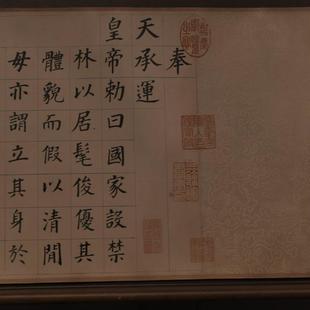 奉
天承運
皇帝勅曰國家設禁
林以居髦俊優其
體貌而假以清閒
毋亦謂立其身於